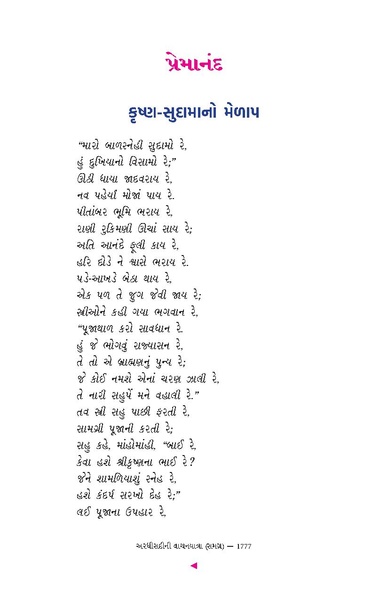 પ્રેમાનંદ
કૃષ્ણ-સુદામાનો મેળાપ
“મારો બાળસ્નેહી સુદામો રે,
હું દુખિયાનો વિસામો રે;”
ઊઠી ધાયા જાદવરાય રે,
નવ પહેર્યાં મોજાં પાય રે.
પીતાંબર ભૂમિ ભરાય રે,
રાણી રુકિમણી ઊંચાં સાય રે;
અતિ આનંદે ફૂલી કાય રે,
હરિ દોડે ને શ્વાસે ભરાય રે.
પડે-આખડે બેઠા થાય રે,
એક પળ તે જુગ જેવી જાય રે;
સ્ત્રીઓને કહી ગયા ભગવાન રે,
“પૂજાથાળ કરો સાવધાન રે.
હું જે ભોગવું રાજ્યાસન રે,
તે તો એ બ્રાહ્મણનું પુન્ય રે;
જે કોઈ નમશે એનાં ચરણ ઝાલી રે,
તે નારી સહુપેં મને વહાલી રે.”
તવ સ્ત્રી સહુ પાછી ફરતી રે,
સામગ્રી પૂજાની કરતી રે;
સહુ કહે, માંહોમાંહી, “બાઈ રે,
કેવા હશે શ્રીકૃષ્ણના ભાઈ રે?
જેને શામળિયાશું સ્નેહ રે,
હશે કંદર્પ સરખો દેહ રે;”
લઈ પૂજાના ઉપહાર રે,
અરધીસદીની વાચનયાત્રા (સમગ્ર) — 1777